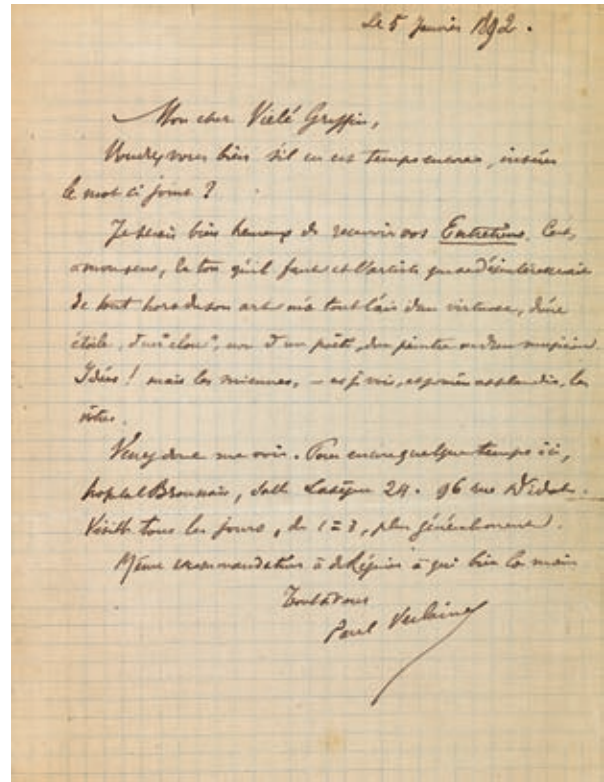 Le 5 Janvier 1892.
Mon cher Vielé Griffin,
Voudrez vous bien s'il en est temps encore, insérer
le mot ci joint ?
Je serais bien heureux de recevoir vos Entretiens. C'est,
à mon sens, le ton qu'il faut et l'artiste qui se désintéresserait
de tout hors de son art m'a tout l'air d'un virtuose, d'une
étoile, d'un "clou", non d'un poète, d'un peintre ou d'un musicien.
Idées ! mais les miennes, — et j'y vois, et j'en applaudis, les
vôtres.
Venez donc me voir. Pour encore quelque temps ici,
hopital Broussais, salle Lasègue 24. 96 rue Didot.
Visite tous les jours, de 1 à 3, plus généralement.
Même recommandation à de Régnier à qui bien la main
Tout à vous
Paul Verlaine